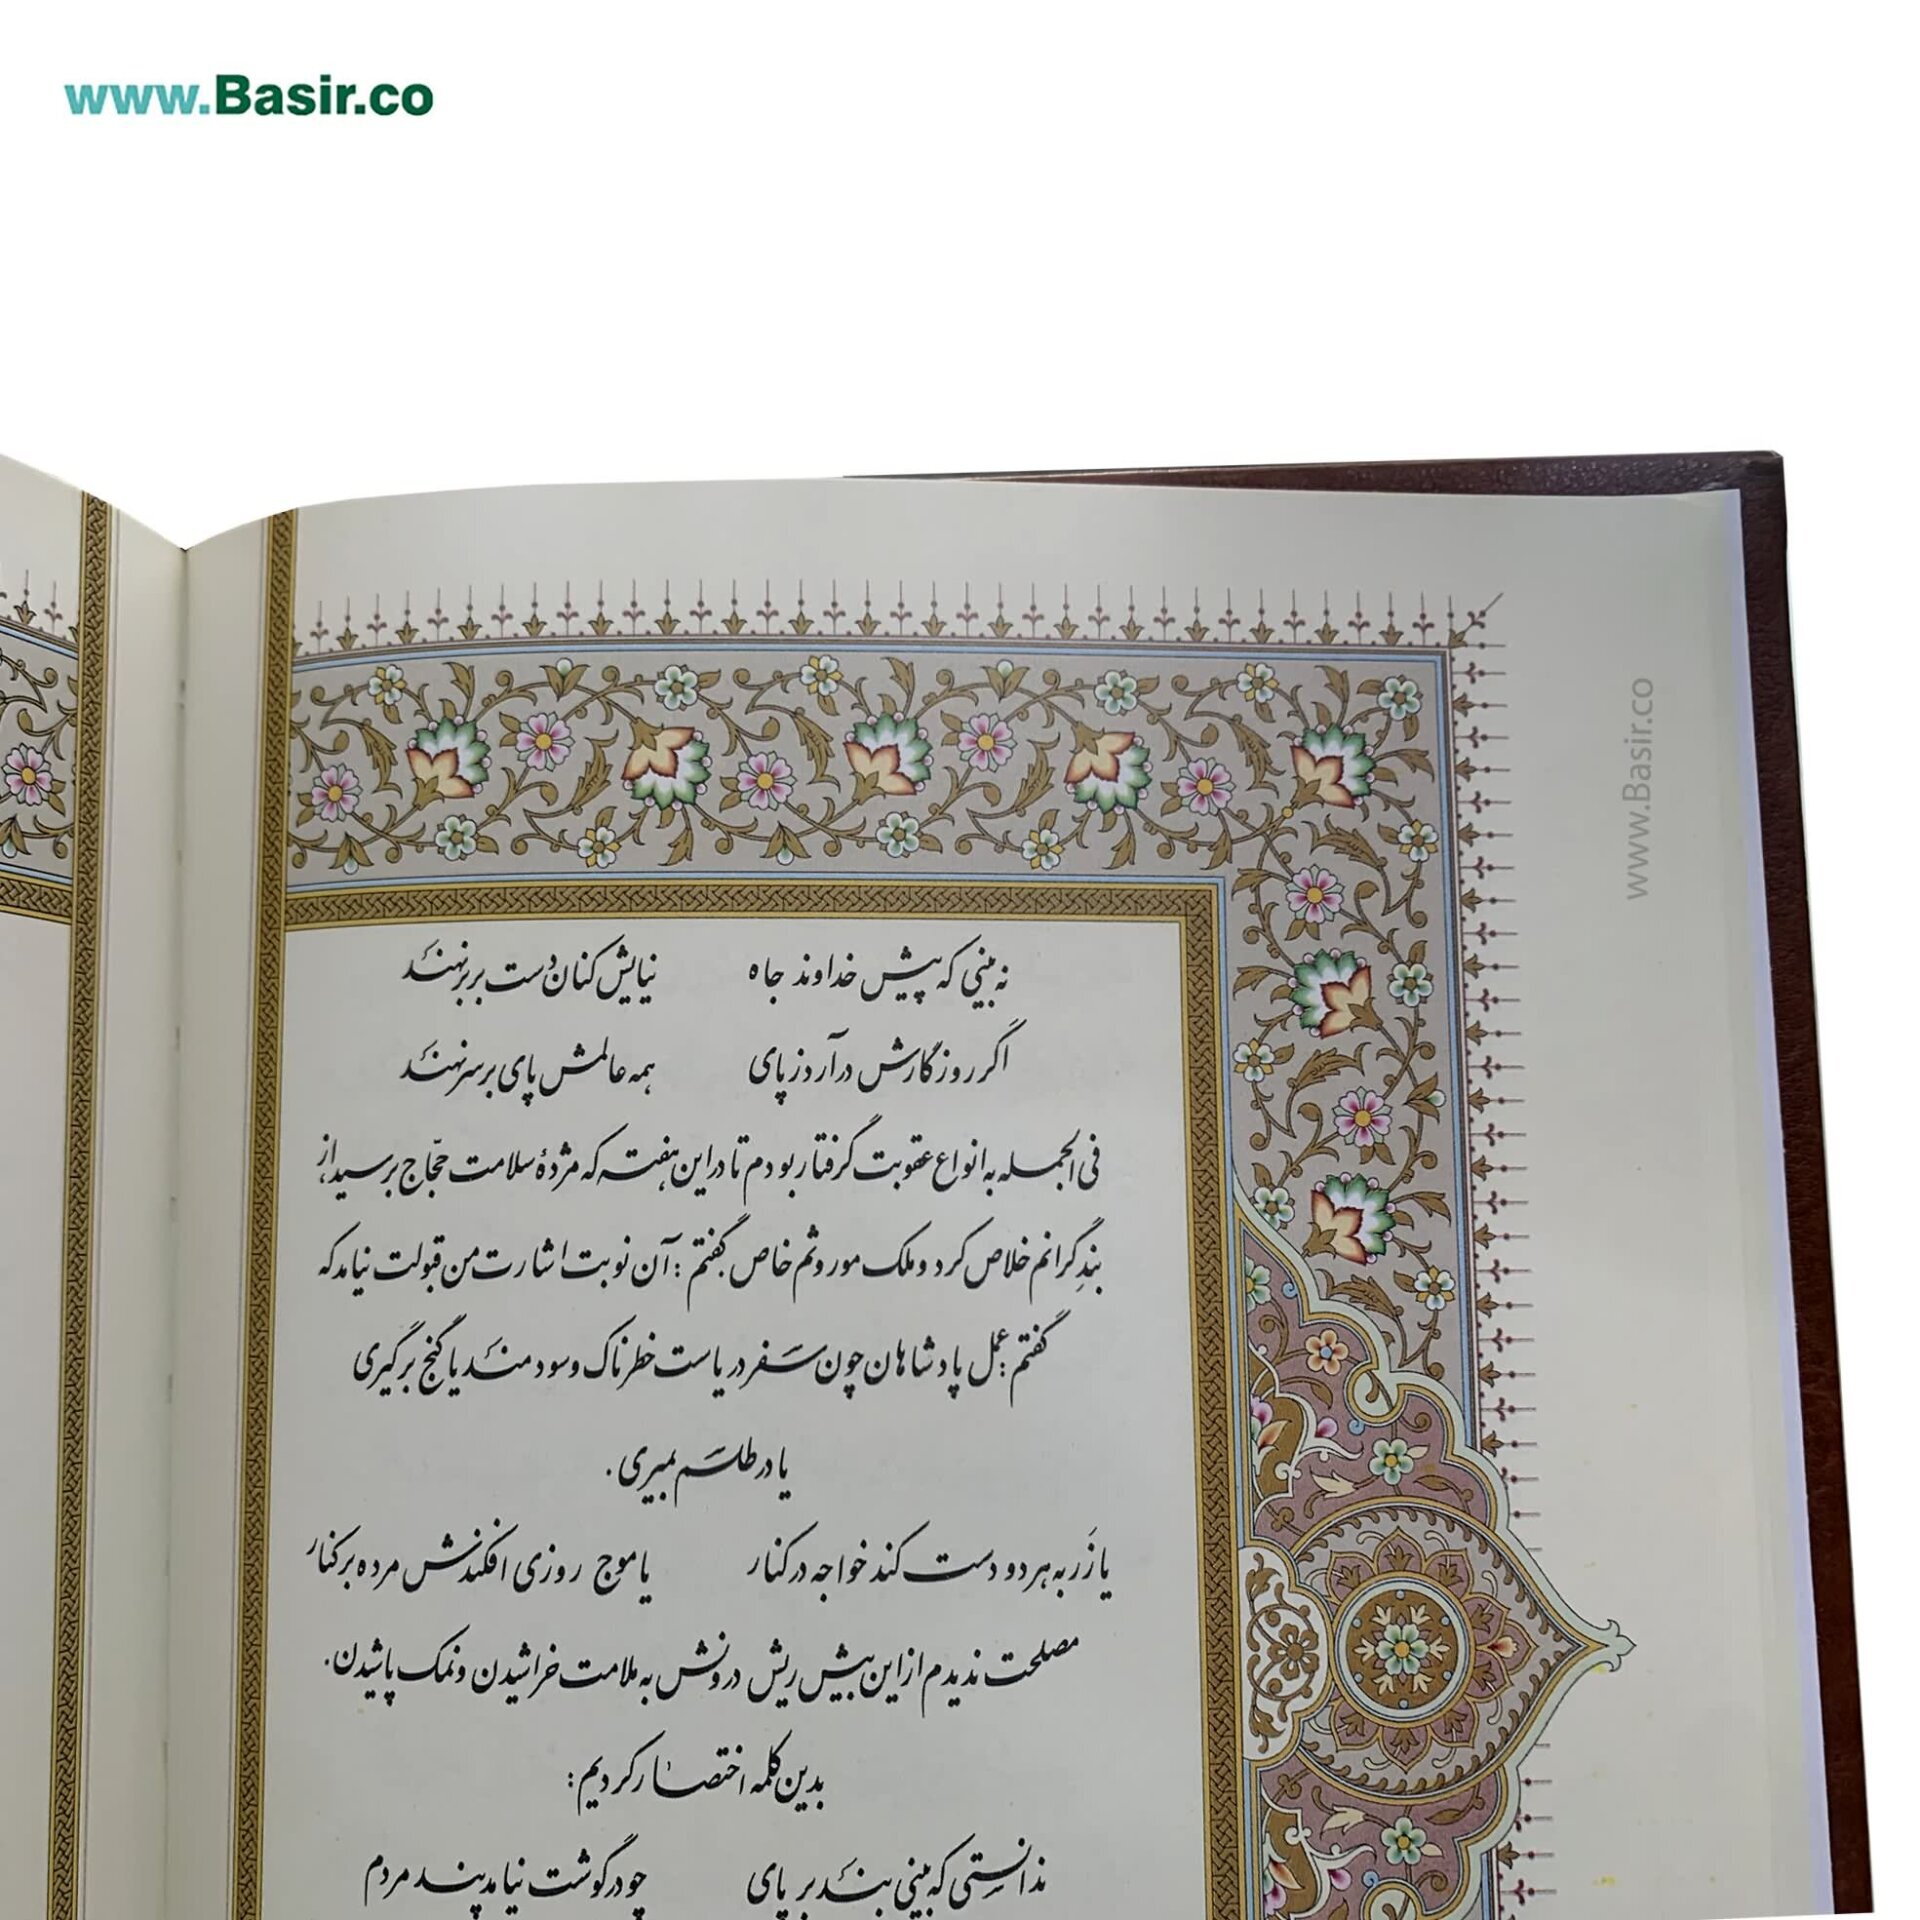 www.Basir.co
www.Basir.co
نه بینی که پیش خداوند جاه نیایش کنان دست بر بر نهند
اگر روزگارش درآرد ز پای همه عالمش پای بر سر نهند
فی الجمله به انواع عقوبت گرفتار بودم تا در این هفته که مژدهٔ سلامت حجّاج برسید از
بندِ گرانم خلاص کرد و ملک موروثم خاص. گفتم: آن نوبت اشارت من قبولت نیامد که
گفتم: عمل پادشاهان چون سفر دریاست خطرناک و سودمند یا گنج برگیری
یا در طلسم بمیری.
یا زَر به هر دو دست کند خواجه در کنار یا موج روزی افکندش مرده بر کنار
مصلحت ندیدم از این بیش ریش درونش به ملامت خراشیدن و نمک پاشیدن.
بدین کلمه اختصار کردیم:
ندانستی که بینی بند بر پای چو در گوشت نیامد پند مردم